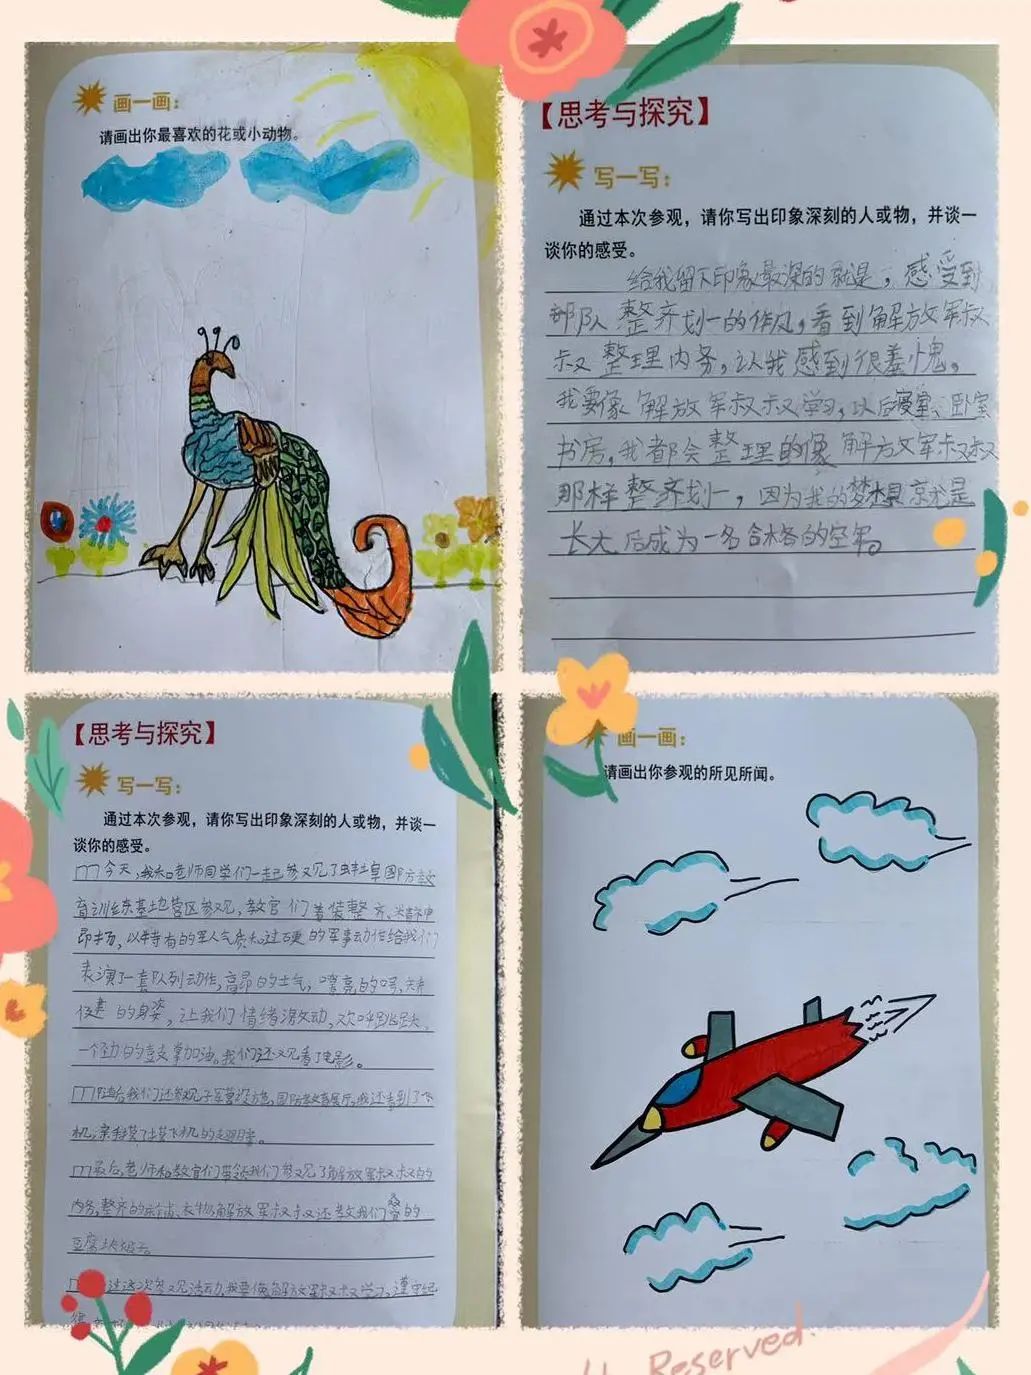 画一画：
请画出你最喜欢的花或小动物。
【思考与探究】
写一写：
通过本次参观，请你写出印象深刻的人或物，并谈一
谈你的感受。
给我留下印象最深的就是，感受到
部队整齐划一的作风，看到解放军叔
叔整理内务，让我感到很羞愧。
我要像解放军叔叔学习，以后寝室、卧室
书房，我都会整理的像解放军叔叔
那样整齐划一，因为我的梦想就是
长大后成为一名合格的空军。
【思考与探究】
写一写：
通过本次参观，请你写出印象深刻的人或物，并谈一
谈你的感受。
今天，我和老师同学们一起参观了蚌埠国防教
育训练基地营区参观，教官们着装整齐、精神
昂扬，以特有的军人气质和过硬的军事动作给我们
表演了一套队列动作，高昂的士气，嘹亮的口号，矫
健的身姿，让我们情绪激动，欢呼跳跃，
一个劲的鼓掌加油。我们还观看了电影。
随后我们还参观了军营设施，国防教育展厅，我还看到了飞
机，亲手摸了摸飞机的翅膀。
最后，老师和教官们带领我们参观了解放军叔叔的
内务，整齐的床铺、衣物，解放军叔叔还教我们叠的
豆腐块被子。
过这次参观活动，我要像解放军叔叔学习，遵守纪
画一画：
请画出你参观的所见所闻。
Reserved.